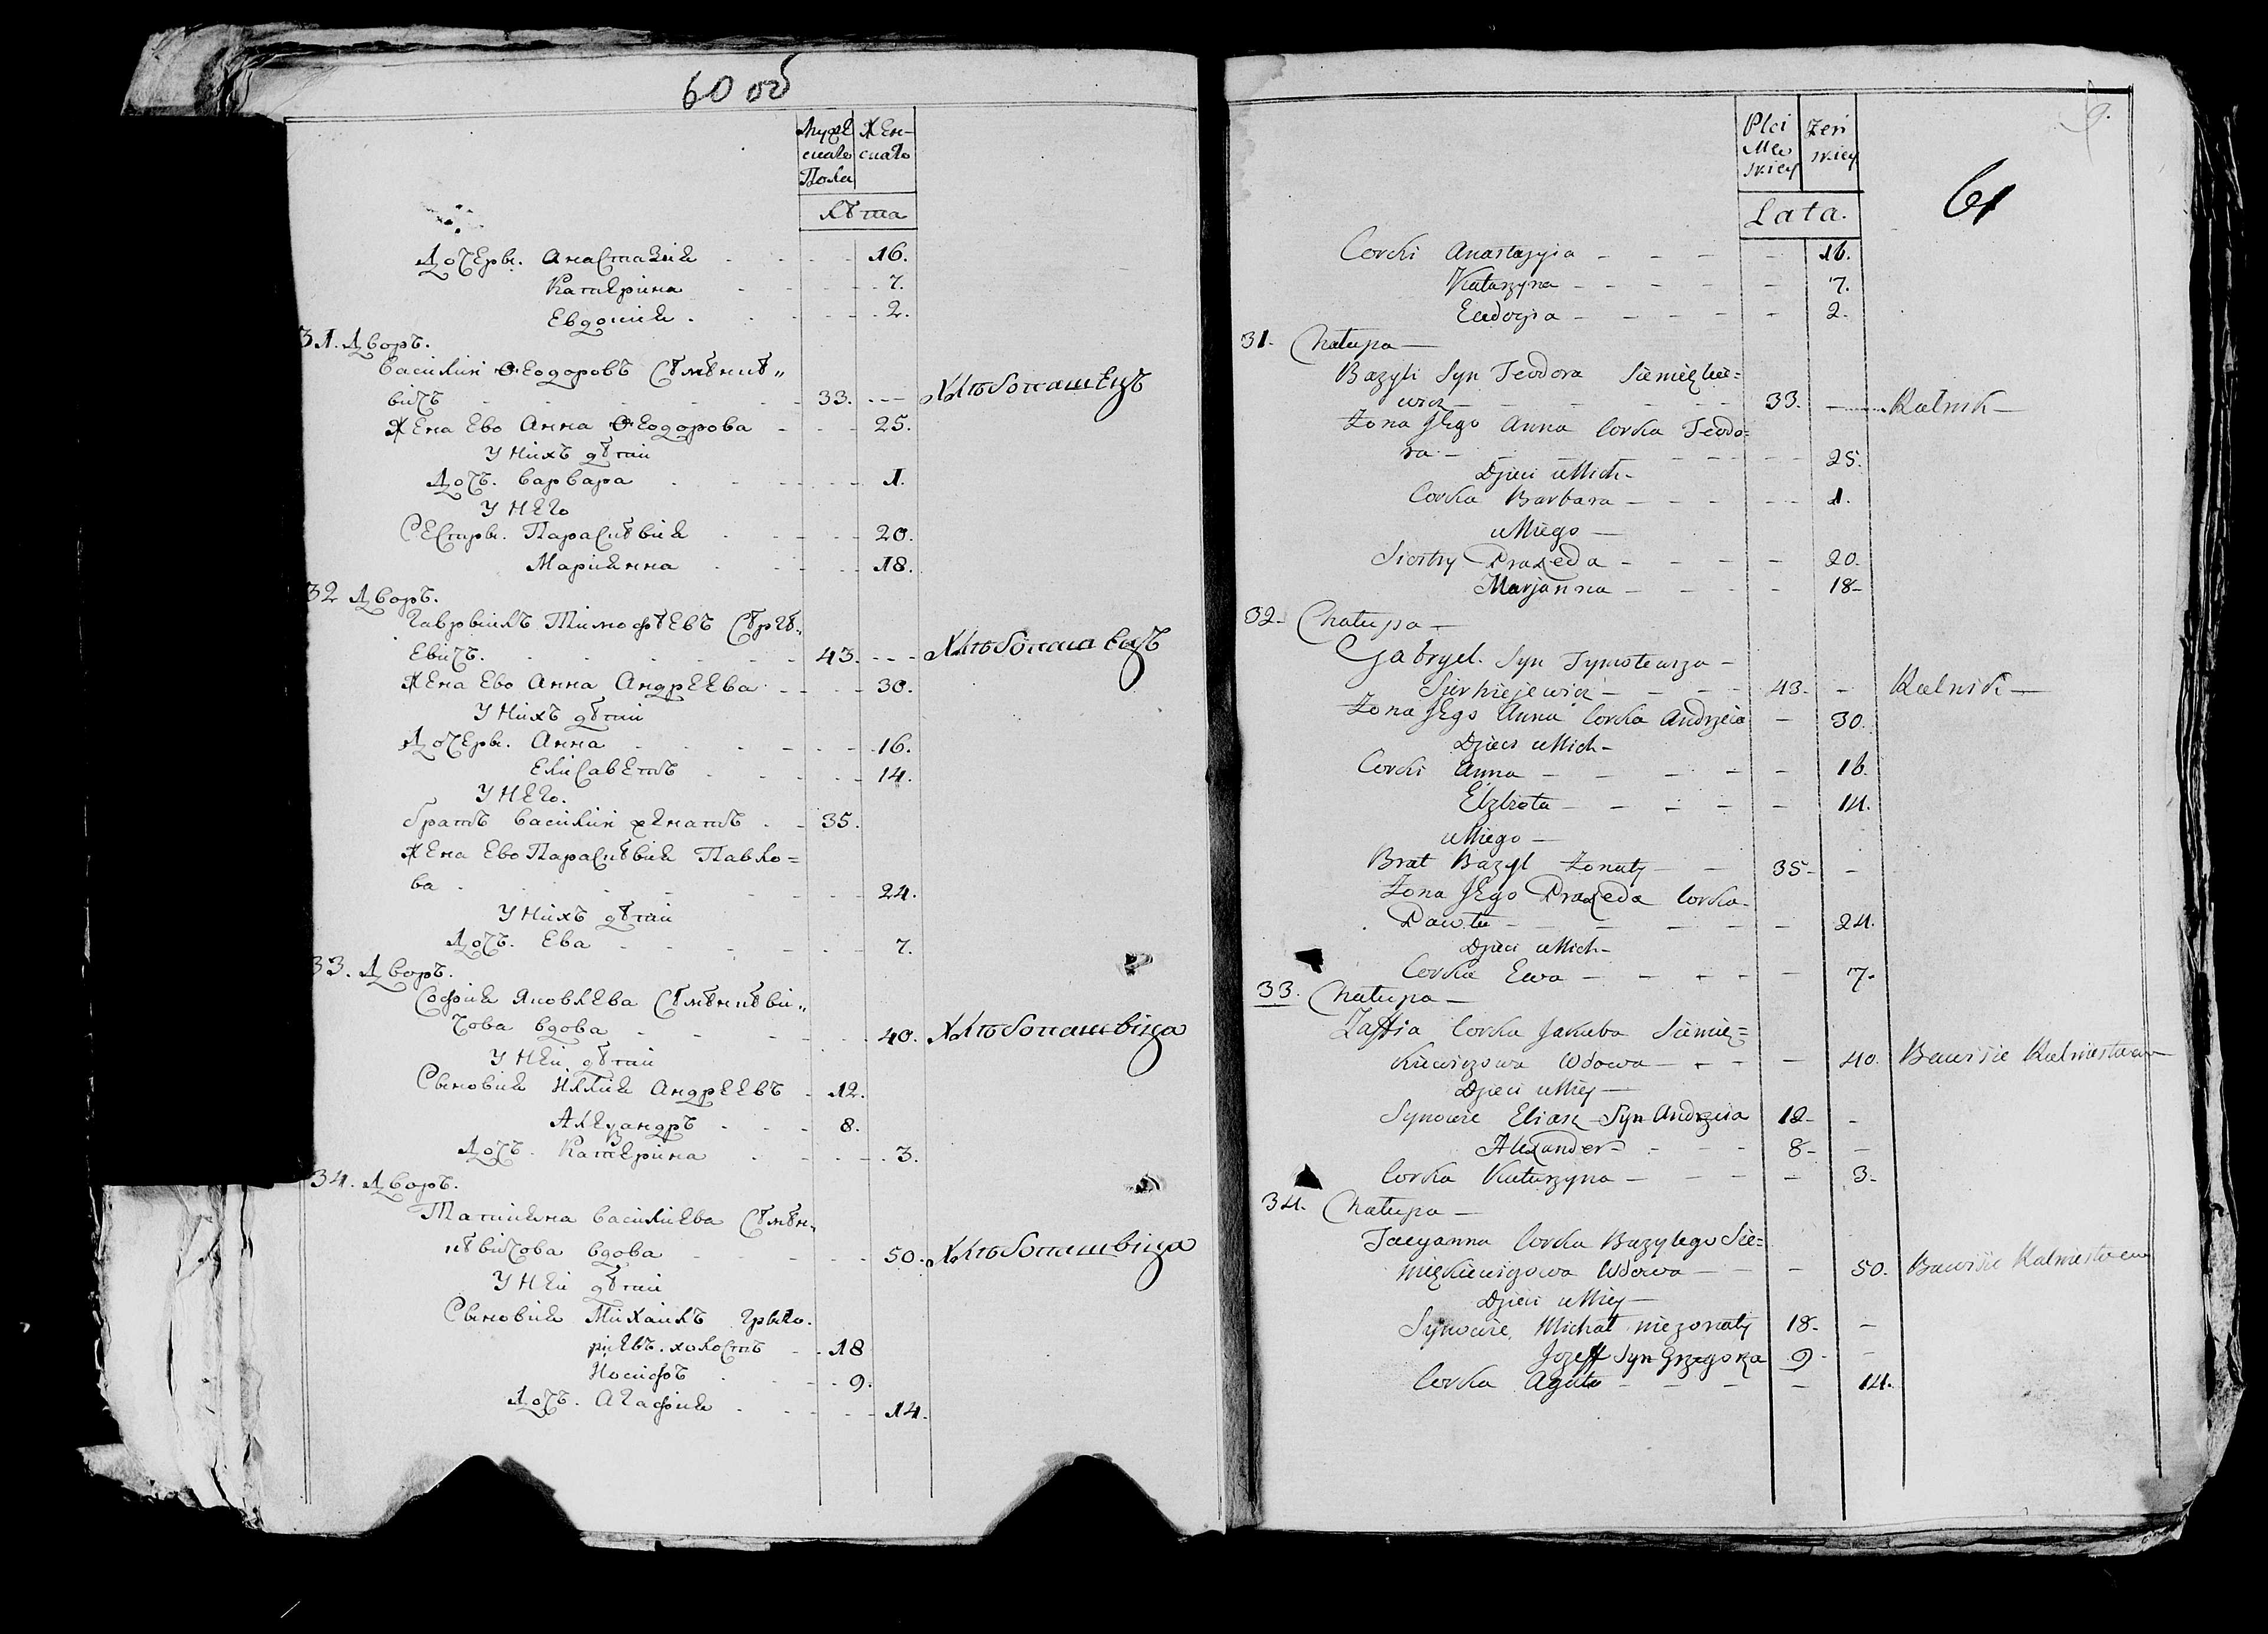 60 об
Мужескаго Пола
Женскаго
Лѣта
Дочеры. Анастазия 16.
Катерина 7.
Евдокия 2.
31. Дворъ.
Василий Ѳеодоровъ Сѣмѣнкѣ„
вичъ 33. Хлѣбопашецъ
Жена Ево Анна Ѳеодорова 25.
У Нихъ дѣти
Дочъ. Варвара 1.
У Него
Сестры. Параскѣвия 20.
Марианна 18.
32 Дворъ.
Гаврыилъ Тимофѣевъ Сѣргѣ„
евичъ. 43. Хлѣбопашецъ
Жена Ево Анна Андреева 30.
У Нихъ дѣти
Дочеры. Анна 16.
Елисаветъ 14.
У Него.
братъ Василий женатъ 35.
Жена Ево Параскѣвия Павло=
ва 24.
У Нихъ дѣти
Дочъ. Ева 7.
33. Дворъ.
София Яковлева Сѣмѣнкѣви„
чова вдова 40. Хлѣбопашвица
У Ней дѣти
Сыновия Илия Андреевъ 12.
Александръ 8.
Дочъ. Катерина 3.
34. Дворъ.
Татияна Василиева Сѣмѣн„
кѣвичова вдова 50. Хлѣбопашвица
У Ней дѣти
Сыновия Михаилъ Грыго.
риевъ. холостъ 18
Иосифъ 9.
Дочъ. Агафия 14.
Płci Męskiey
Żeńskiey
9.
61
Lata.
Corki Anastazyia 16.
Katarzyna 7.
Eudocya 2.
31. Chałupa
Bazyli Syn Teodora Siemiękie=
wicz 33. Rolnik
Żona Jego Anna Corka Teodo=
ra 25.
Dzieci u Nich
Corka Barbara 1.
u Niego
Siostry Praxeda 20.
Marjanna 18
32. Chałupa
Gabryel Syn Tymoteusza
Sierhiejewicz 43. Rolnik
Żona Jego Anna Corka Andrzeia 30.
Dzieci u Nich
Corki Anna 16.
Elżbieta 14.
u Niego
Brat Bazyl Żonaty 35
Żona Jego Praxeda Corka
Pawła 24.
Dzieci u Nich
Corka Ewa 7.
33. Chałupa
Zaffia Corka Jakuba Siemię=
kiewiczowa Wdowa 40. Bawi sie Rolnictwem
Dzieci u Niey
Synowie Eliasz Syn Andrzeia 12
Alexander 8
Corka Katarzyna 3
34. Chałupa
Tacyanna Corka Bazylego Sie=
miękiewiczowa Wdowa 50. Bawi sie Rolnictwem
Dzieci u Niey
Synowie Michał nieżonaty 18
Jozeff Syn Grzegorza 9
Corka Agata 14.